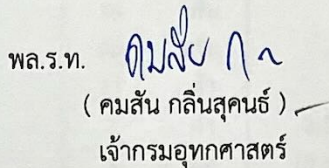 พล.ร.ท.
( คมสัน กลิ่นสุคนธ์ )
เจ้ากรมอุทกศาสตร์